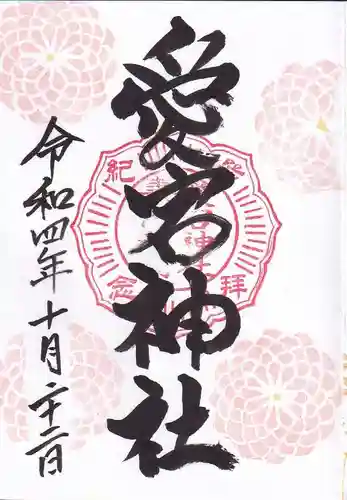 愛宕神社
令和四年十月二十二日
登拝
紀念